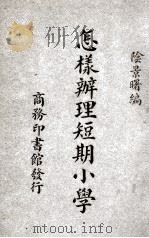 陰景曙編
怎樣辦理短期小學
商務印書館發行